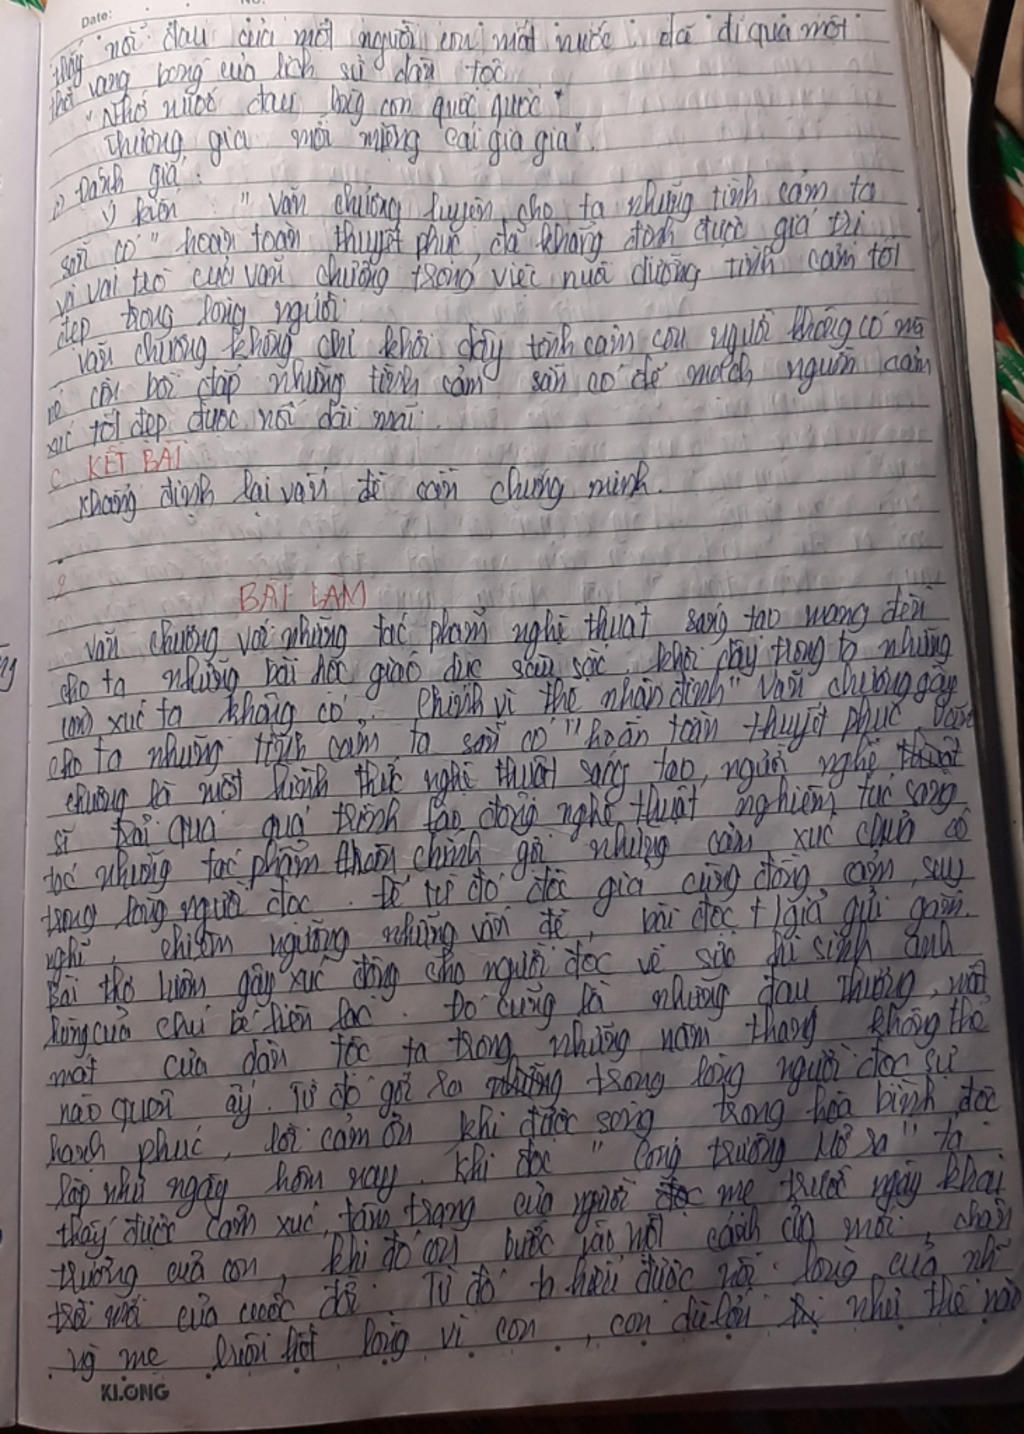 Date:
thấy nỗi đau của một người con mất nước, đã đi qua một
thời vang bóng của lịch sử dân tộc
"Nhớ nước đau lòng con quốc quốc"
Thương gia mỏi miệng cái gia gia".
Đánh giá:
Ý kiến "Văn chương luyện cho ta những tình cảm ta
sẵn có" hoàn toàn thuyết phục, đã khẳng định được giá trị
và vai trò của văn chương trong việc nuôi dưỡng tình cảm tốt
đẹp trong lòng người
Văn chương không chỉ khơi dậy tình cảm con người không có mà
nó còn bồi đắp những tình cảm sẵn có để mạch nguồn cảm
xúc tốt đẹp được nối dài mãi.
C. KẾT BÀI
Khẳng định lại vấn đề cần chứng minh.
BÀI LÀM
Văn chương với những tác phẩm nghệ thuật sáng tạo mang đến
cho ta những bài học giáo dục sâu sắc, khơi dậy trong ta những
cảm xúc ta không có. Chính vì thế nhận định "Văn chương gây
cho ta những tình cảm ta sẵn có" hoàn toàn thuyết phục. Văn
chương là một hình thức nghệ thuật sáng tạo, người nghệ
sĩ trải qua quá trình lao động nghệ thuật nghiêm túc sáng
tác những tác phẩm chính gợi những cảm xúc chưa có
trong lòng người đọc. Để từ đó độc giả cùng đồng cảm, suy
nghĩ, chiêm ngưỡng những vấn đề, bài đọc t/giả gửi gắm.
Bài thơ Lượm gây xúc động cho người đọc về sự hi sinh anh
hùng của chú bé liên lạc. Đó cũng là những đau thương, mất
mát của dân tộc ta trong những năm tháng không thể
nào quên ấy. Từ đó gợi ra trong lòng người đọc sự
hạnh phúc, lời cảm ơn khi được sống trong hòa bình, độc
lập như ngày hôm nay. Khi đọc "Cổng trường mở ra" ta
thấy được cảm xúc, tâm trạng của người mẹ trước ngày khai
trường của con, khi đó con bước vào một cánh cửa mới, chân
trời mới của cuộc đời. Từ đó ta hiểu được nỗi lòng của
mẹ luôn hết lòng vì con, con như thế nào
KLONG